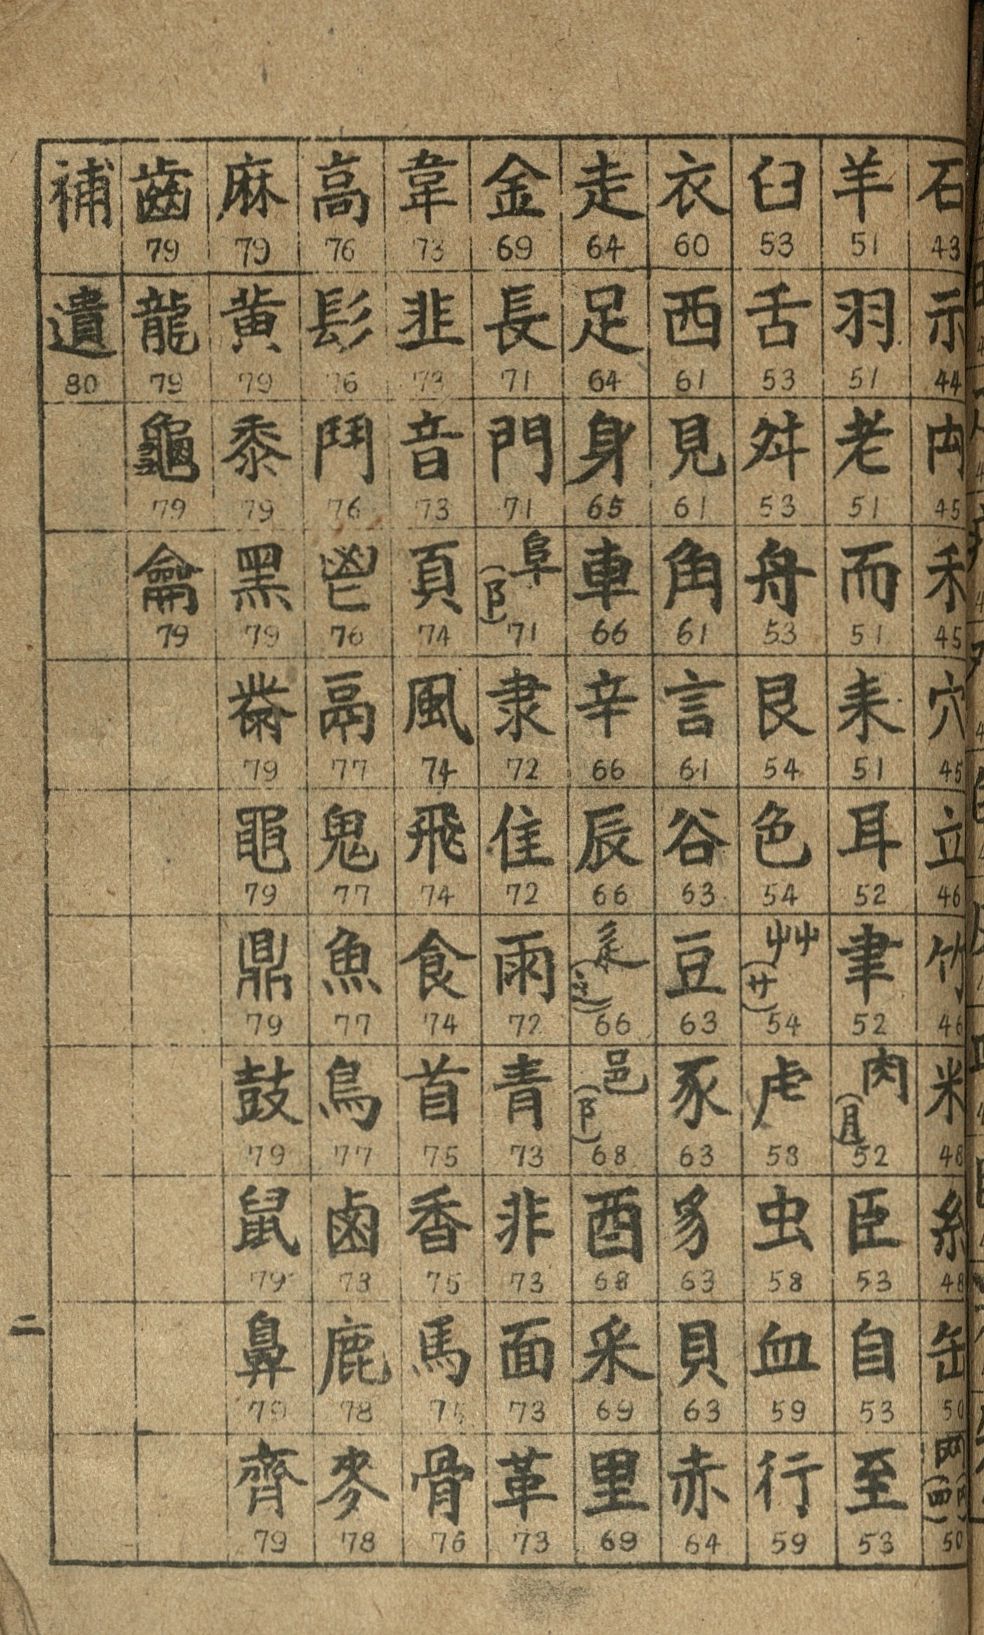 石 43
示 44
禸 45
禾 45
穴 45
立 46
竹 46
米 48
糸 48
缶 50
网 50
羊 51
羽 51
老 51
而 51
耒 51
耳 52
聿 52
肉(月) 52
臣 53
自 53
至 53
臼 53
舌 53
舛 53
舟 53
艮 54
色 54
艸(艹) 54
虍 58
虫 58
血 59
行 59
衣 60
西 61
見 61
角 61
言 61
谷 63
豆 63
豕 63
豸 63
貝 63
赤 64
走 64
足 64
身 65
車 66
辛 66
辰 66
辵(辶) 66
邑(阝) 68
酉 68
釆 69
里 69
金 69
長 71
門 71
阜(阝) 71
隶 72
隹 72
雨 72
青 73
非 73
面 73
革 73
韋 73
韭 73
音 73
頁 74
風 74
飛 74
食 74
首 75
香 75
馬 75
骨 76
高 76
髟 76
鬥 76
鬯 76
鬲 77
鬼 77
魚 77
鳥 77
鹵 78
鹿 78
麥 78
麻 79
黃 79
黍 79
黑 79
黹 79
黽 79
鼎 79
鼓 79
鼠 79
鼻 79
齊 79
齒 79
龍 79
龜 79
龠 79
補
遺 80
二